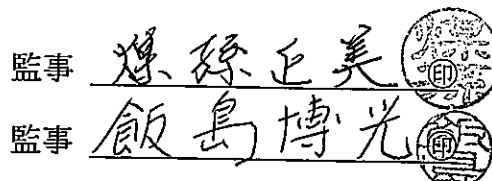 監事 孫正美 ㊞
監事 飯島博光 ㊞